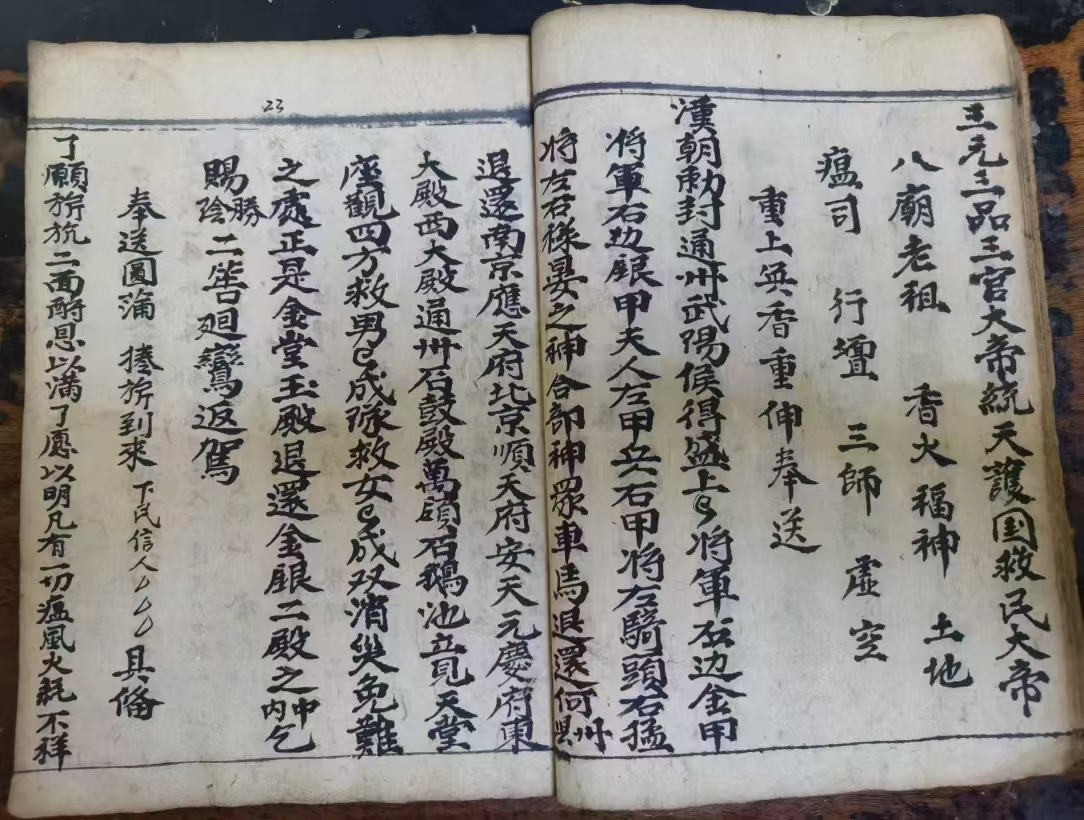 三元三品三官大帝統天護国救民大帝
八廟老祖 香火福神 土地
瘟司 行壇 三師 虚空
重上真香重伸奉送
漢朝勅封通州武陽侯得盛上 将軍右边金甲
将軍右边銀甲夫人左甲兵右甲将左騎頭右猛
将左右祿晏之神合部神眾車馬退還何州縣
退還南京應天府北京順天府安天元慶府東
大殿西大殿通州石鼓殿萬碩石鵝池立見天堂
座觀四方救男 成隊救女 成双消災免難
之處正是金堂玉殿退還金銀二殿之中内乞
賜勝陰二筶廻鸞返駕
奉送圓滿 捲旂到來 下民信人 具偹
了願旂旂二面酧恩以滿了愿以明凡有一切瘟風火耗不祥
23